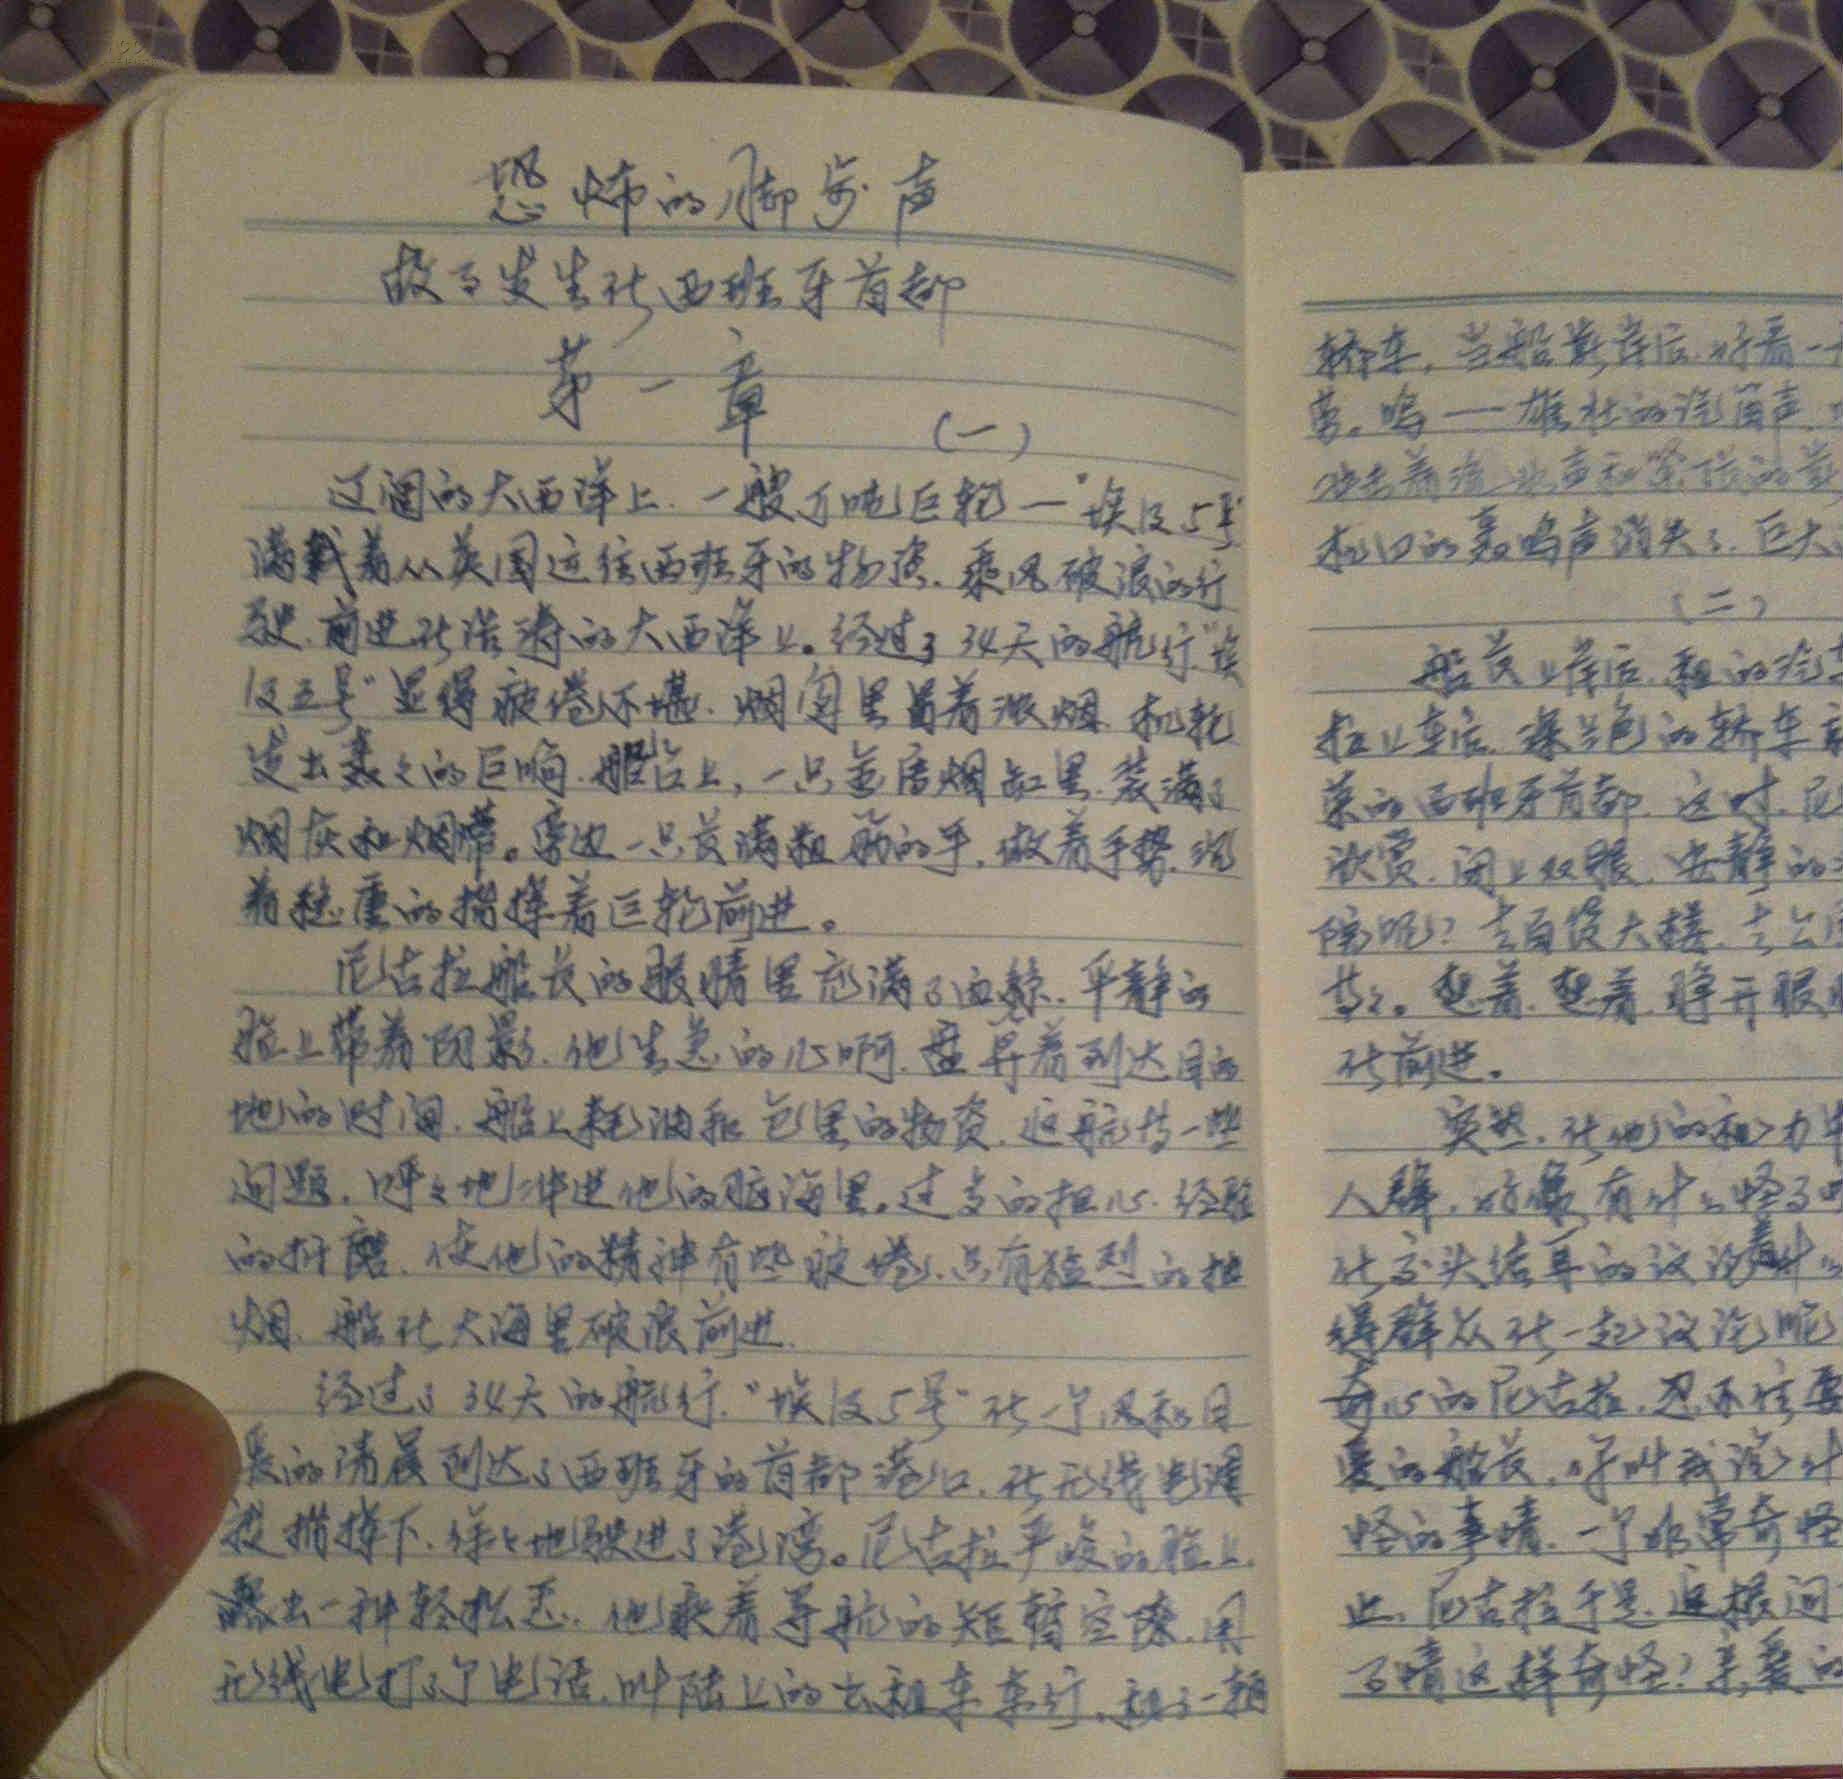 恐怖的脚步声
故事发生在西班牙首都
第一章
(一)
辽阔的大西洋上.一艘万吨巨轮—"埃及5号"
满载着从英国运往西班牙的物资.乘风破浪的行
驶.前进在浩涛的大西洋上。经过了34天的航行."埃
及五号"显得疲倦不堪.烟囱里冒着浓烟.机轮
发出轰々的巨响.船台上,一只 烟缸里.装满了
烟灰和烟蒂。旁边一只长满粗 的手.做着手势.沉
着稳重的指挥着巨轮前进。
尼古拉船长的眼睛里充满了血 .平静的
脸上带着阴影.他生急的心啊.盘算着到达目的
地的时间.船上耗油和 里的物资.返航等一些
问题.呼々地冲进他的脑海里。过多的担心.经验
的折磨.使他的精神有些疲倦.只有猛烈的抽
烟.船在大海里破浪前进.
经过了34天的航行."埃及5号"在一个风和日
暖的清晨到达了西班牙的首都港口.在无线电
指挥下.徐々地驶进了港湾。尼古拉严峻的脸上.
露出一种轻松态.他乘着导航的短暂空隙.用
无线电打了个电话.叫陆上的出租车车行.租了一辆
轿车.当船靠岸后.好看一
雄壮的汽笛声.
机口的轰鸣声消失了.巨大
(二)
船长上岸后.租的汽车
拉上车后.深兰色的轿车
的西班牙首都.这时.尼
欣赏.闭上双眼.安静的
院呢?去百货大楼.去公
等々。想着.想着.睁开眼
在前进。
突然.在他的 力
人群.好像有什么怪事
在交头结耳的议论着什么
得群众在一起议论呢
奇心的尼古拉.忍不住要
爱的船长.你叫我说什
怪的事情.一个非常奇怪
此.尼古拉于是.追根问
事情这样奇怪?亲爱的